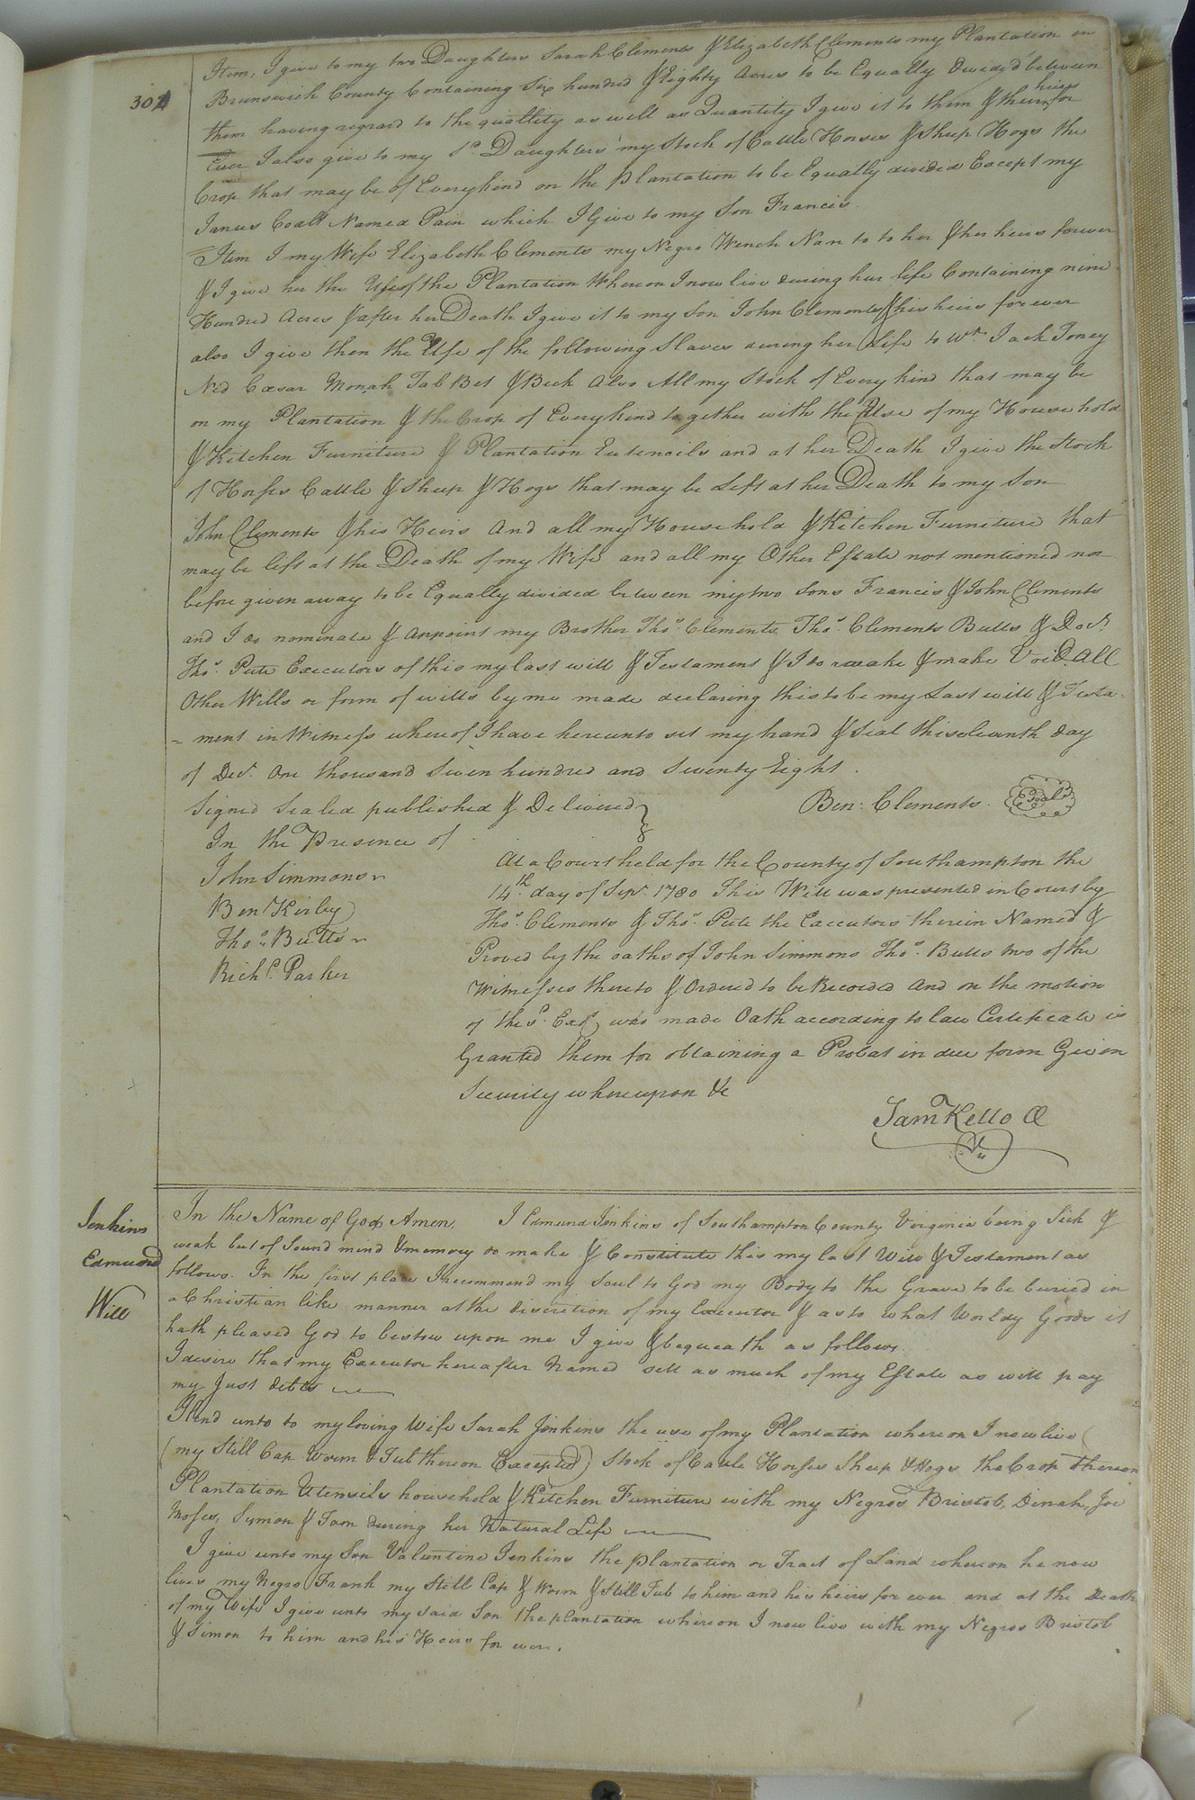 304
Item, I give to my two Daughters Sarah Clements & Elizabeth Clements my Plantation in
Brunswick County Containing Six hundred & Eighty Acres to be Equally Divided between
them having regard to the quallity as well as Quantity I give it to them & their heirs for
Ever I also give to my sd. Daughters my Stock of Cattle Horses & Sheep Hogs the
Crop that may be of Everykind on the plantation to be Equally divided Except my
Janus Coalt Named Pain which I Give to my Son Francis
Item I my Wife Elizabeth Clements my Negro Wench Nan to to her & her heirs forever
& I give her the Use of the Plantation Whereon I now live during her life Containing nine
Hundred Acres & after her Death I give it to my Son John Clements & his heirs for ever
also I give them the Use of the following Slaves during her Life to wt. Jack Toney
Ned Cæsar Monah Tab Bet & Beck Also All my Stock of Every kind that may be
on my Plantation & the Crop of Everykind together with the Use of my House hold
& Kitchen Furniture & Plantation Entencils and at her Death I give the Stock
of Horses Cattle & Sheep & Hogs that may be Left at her Death to my Son
John Clements & his Heirs And all my Household & Kitchen Furniture that
may be left at the Death of my Wife and all my Other Estate not mentioned nor
before given away to be Equally divided between my two Sons Francis & John Clements
and I do nominate & Appoint my Brother Thos. Clements Thos. Clements Butts & Doct.
Thos. Pete Executors of this my last will & Testament & I do revoake & make Void All
Other Wills or form of wills by me made declaring this to be my Last will & Testa-
- ment in Witness whereof I have hereunto set my hand & Seal this eleventh day
of Der. One thousand Seven hundred and Seventy Eight.
Signed Sealed published & Delivered
In the Presence of
Ben: Clements Seal
John Simmons
Benj Kirby
Thos. Butts
Richd. Parker
At a Court held for the County of Southampton the
14th. day of Sepr. 1780 This Will was presented in Court by
Thos. Clements & Thos. Pete the Executors therein Named &
Proved by the oaths of John Simmons Thos. Butts two of the
Witnesses thereto & Ordered to be Recorded And on the motion
of the sd. Exrs. who made Oath according to law Certificate is
Granted them for obtaining a Probat in due form Given
Security whereupon &c
Sam Kello C
Jenkins
Edmund
Will
In the Name of God Amen. I Edmund Jenkins of Southampton County Virginia being Sick &
weak but of Sound mind & memory do make & Constitute this my last Will & Testament as
follows. In the first place I recommend my Soul to God my Body to the Grave to be buried in
a Christian like manner at the discretion of my Executor & as to what Worldy Goods it
hath pleased God to bestow upon me I give & bequeath as follows.
I desire that my Executor hereafter Named sell as much of my Estate as will pay
my Just debts
I lend unto to my loving Wife Sarah Jenkins the use of my Plantation whereon I now live
(my Still Cap Worm & Tub thereon Excepted) Stock of Cattle Horses Sheep & Hogs the Crop thereon
Plantation Utensils household & Kitchen Furniture with my Negros Bristol, Dinah, Joe
Moses, Symon & Tom During her Natural Life
I give unto my Son Valentine Jenkins the plantation or Tract of Land whereon he now
lives my Negro Frank my Still Cap & Worm & Still Tub to him and his heirs for ever and at the Death
of my Wife I give unto my said Son the plantation whereon I now live with my Negros Bristol
& Simon to him and his Heirs for ever.